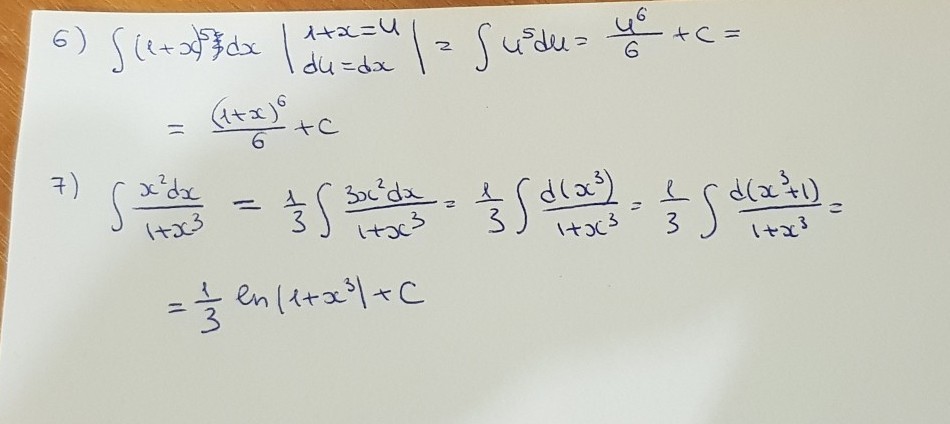 6) ∫(1+x)⁵dx | 1+x=u
du=dx | = ∫u⁵du = u⁶/6 + C =
= (1+x)⁶/6 + C
7) ∫ x²dx/(1+x³) = 1/3 ∫ 3x²dx/(1+x³) = 1/3 ∫ d(x³)/(1+x³) = 1/3 ∫ d(x³+1)/(1+x³) =
= 1/3 ln|1+x³| + C